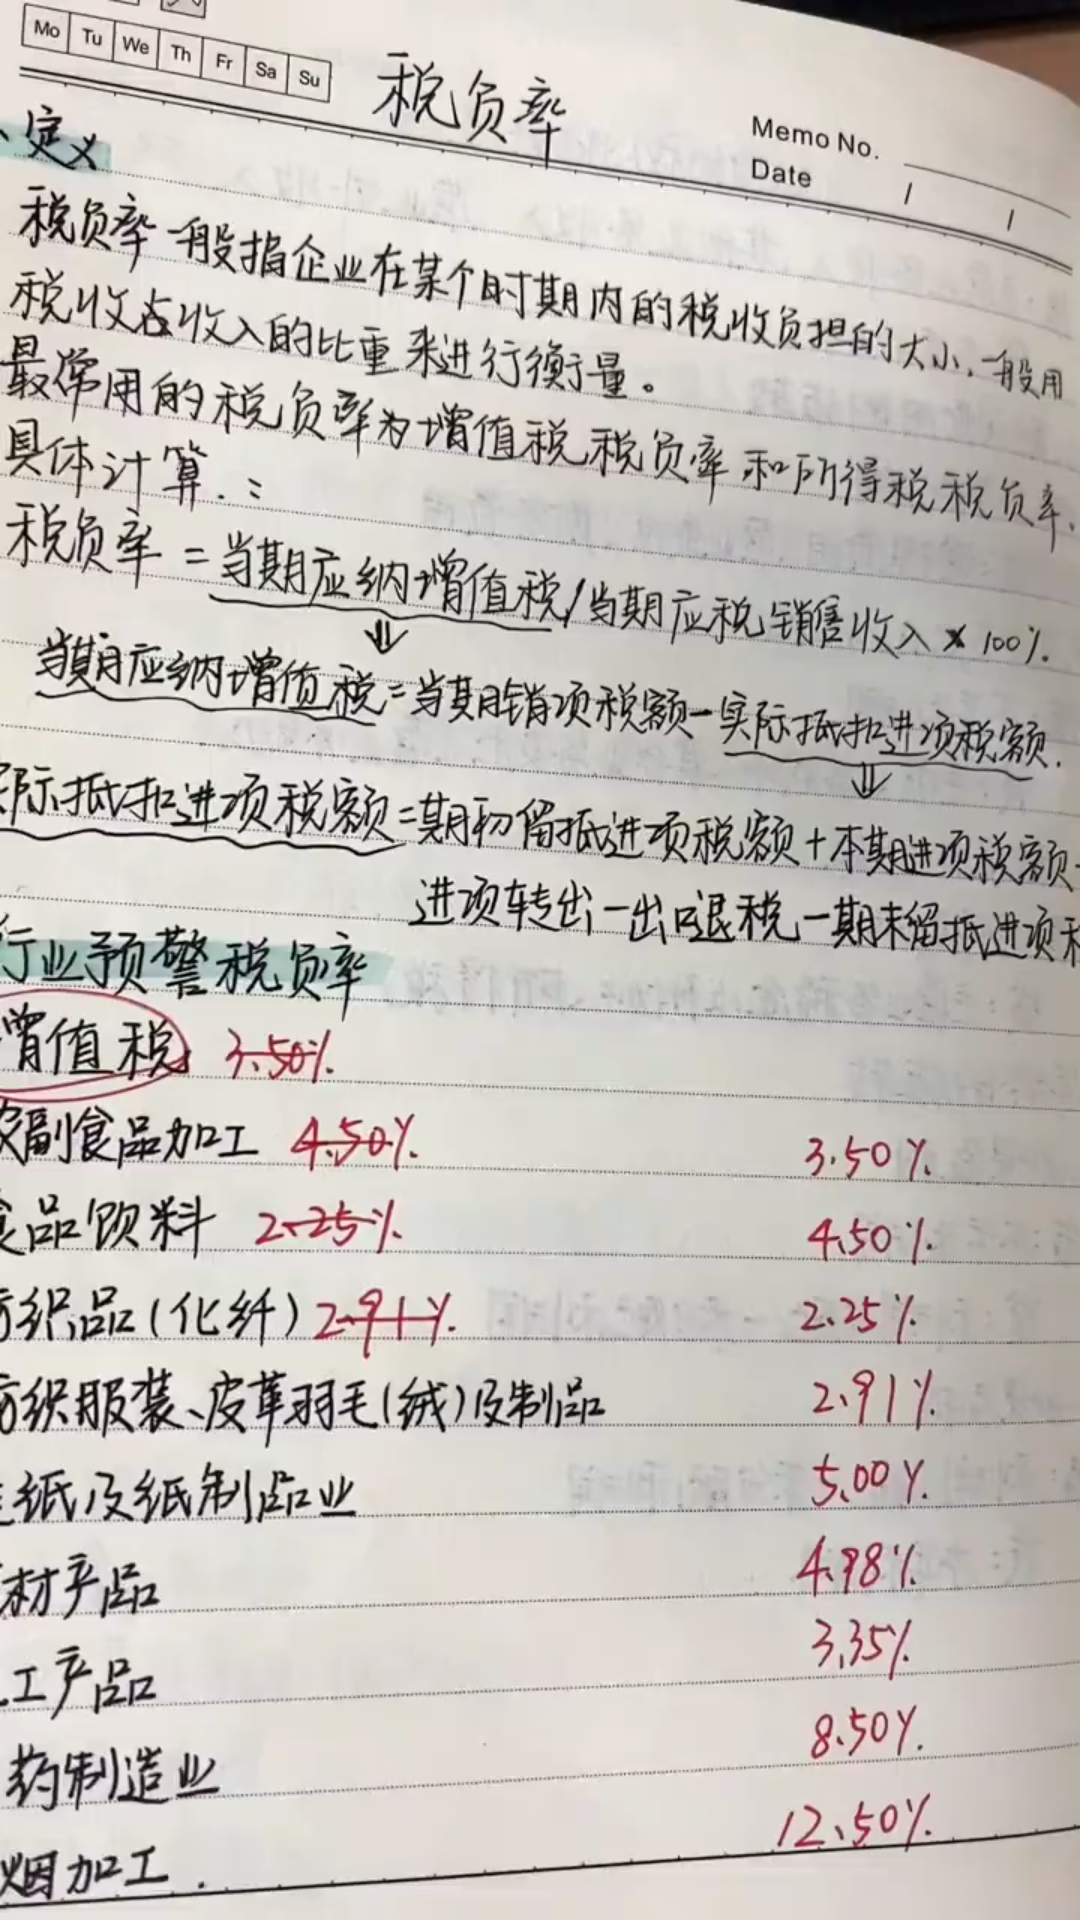 Mo Tu We Th Fr Sa Su
税负率
Memo No.
Date / /
、定义
税负率一般指企业在某个时期内的税收负担的大小,一般用
税收占收入的比重来进行衡量。
最常用的税负率为增值税税负率和所得税税负率.
具体计算.:
税负率=当期应纳增值税/当期应税销售收入×100%.
⇓
当期应纳增值税=当期销项税额-实际抵扣进项税额.
⇓
际抵扣进项税额=期初留抵进项税额+本期进项税额-
进项转出-出口退税-期末留抵进项
行业预警税负率
增值税 3.50%.
农副食品加工 4.50%. 3.50%.
食品饮料 2.25%. 4.50%.
纺织品(化纤) 2.91%. 2.25%.
纺织服装、皮革羽毛(绒)及制品 2.91%.
纸及纸制品业 5.00%.
材产品 4.98%.
工产品 3.35%.
药制造业 8.50%.
烟加工. 12.50%.